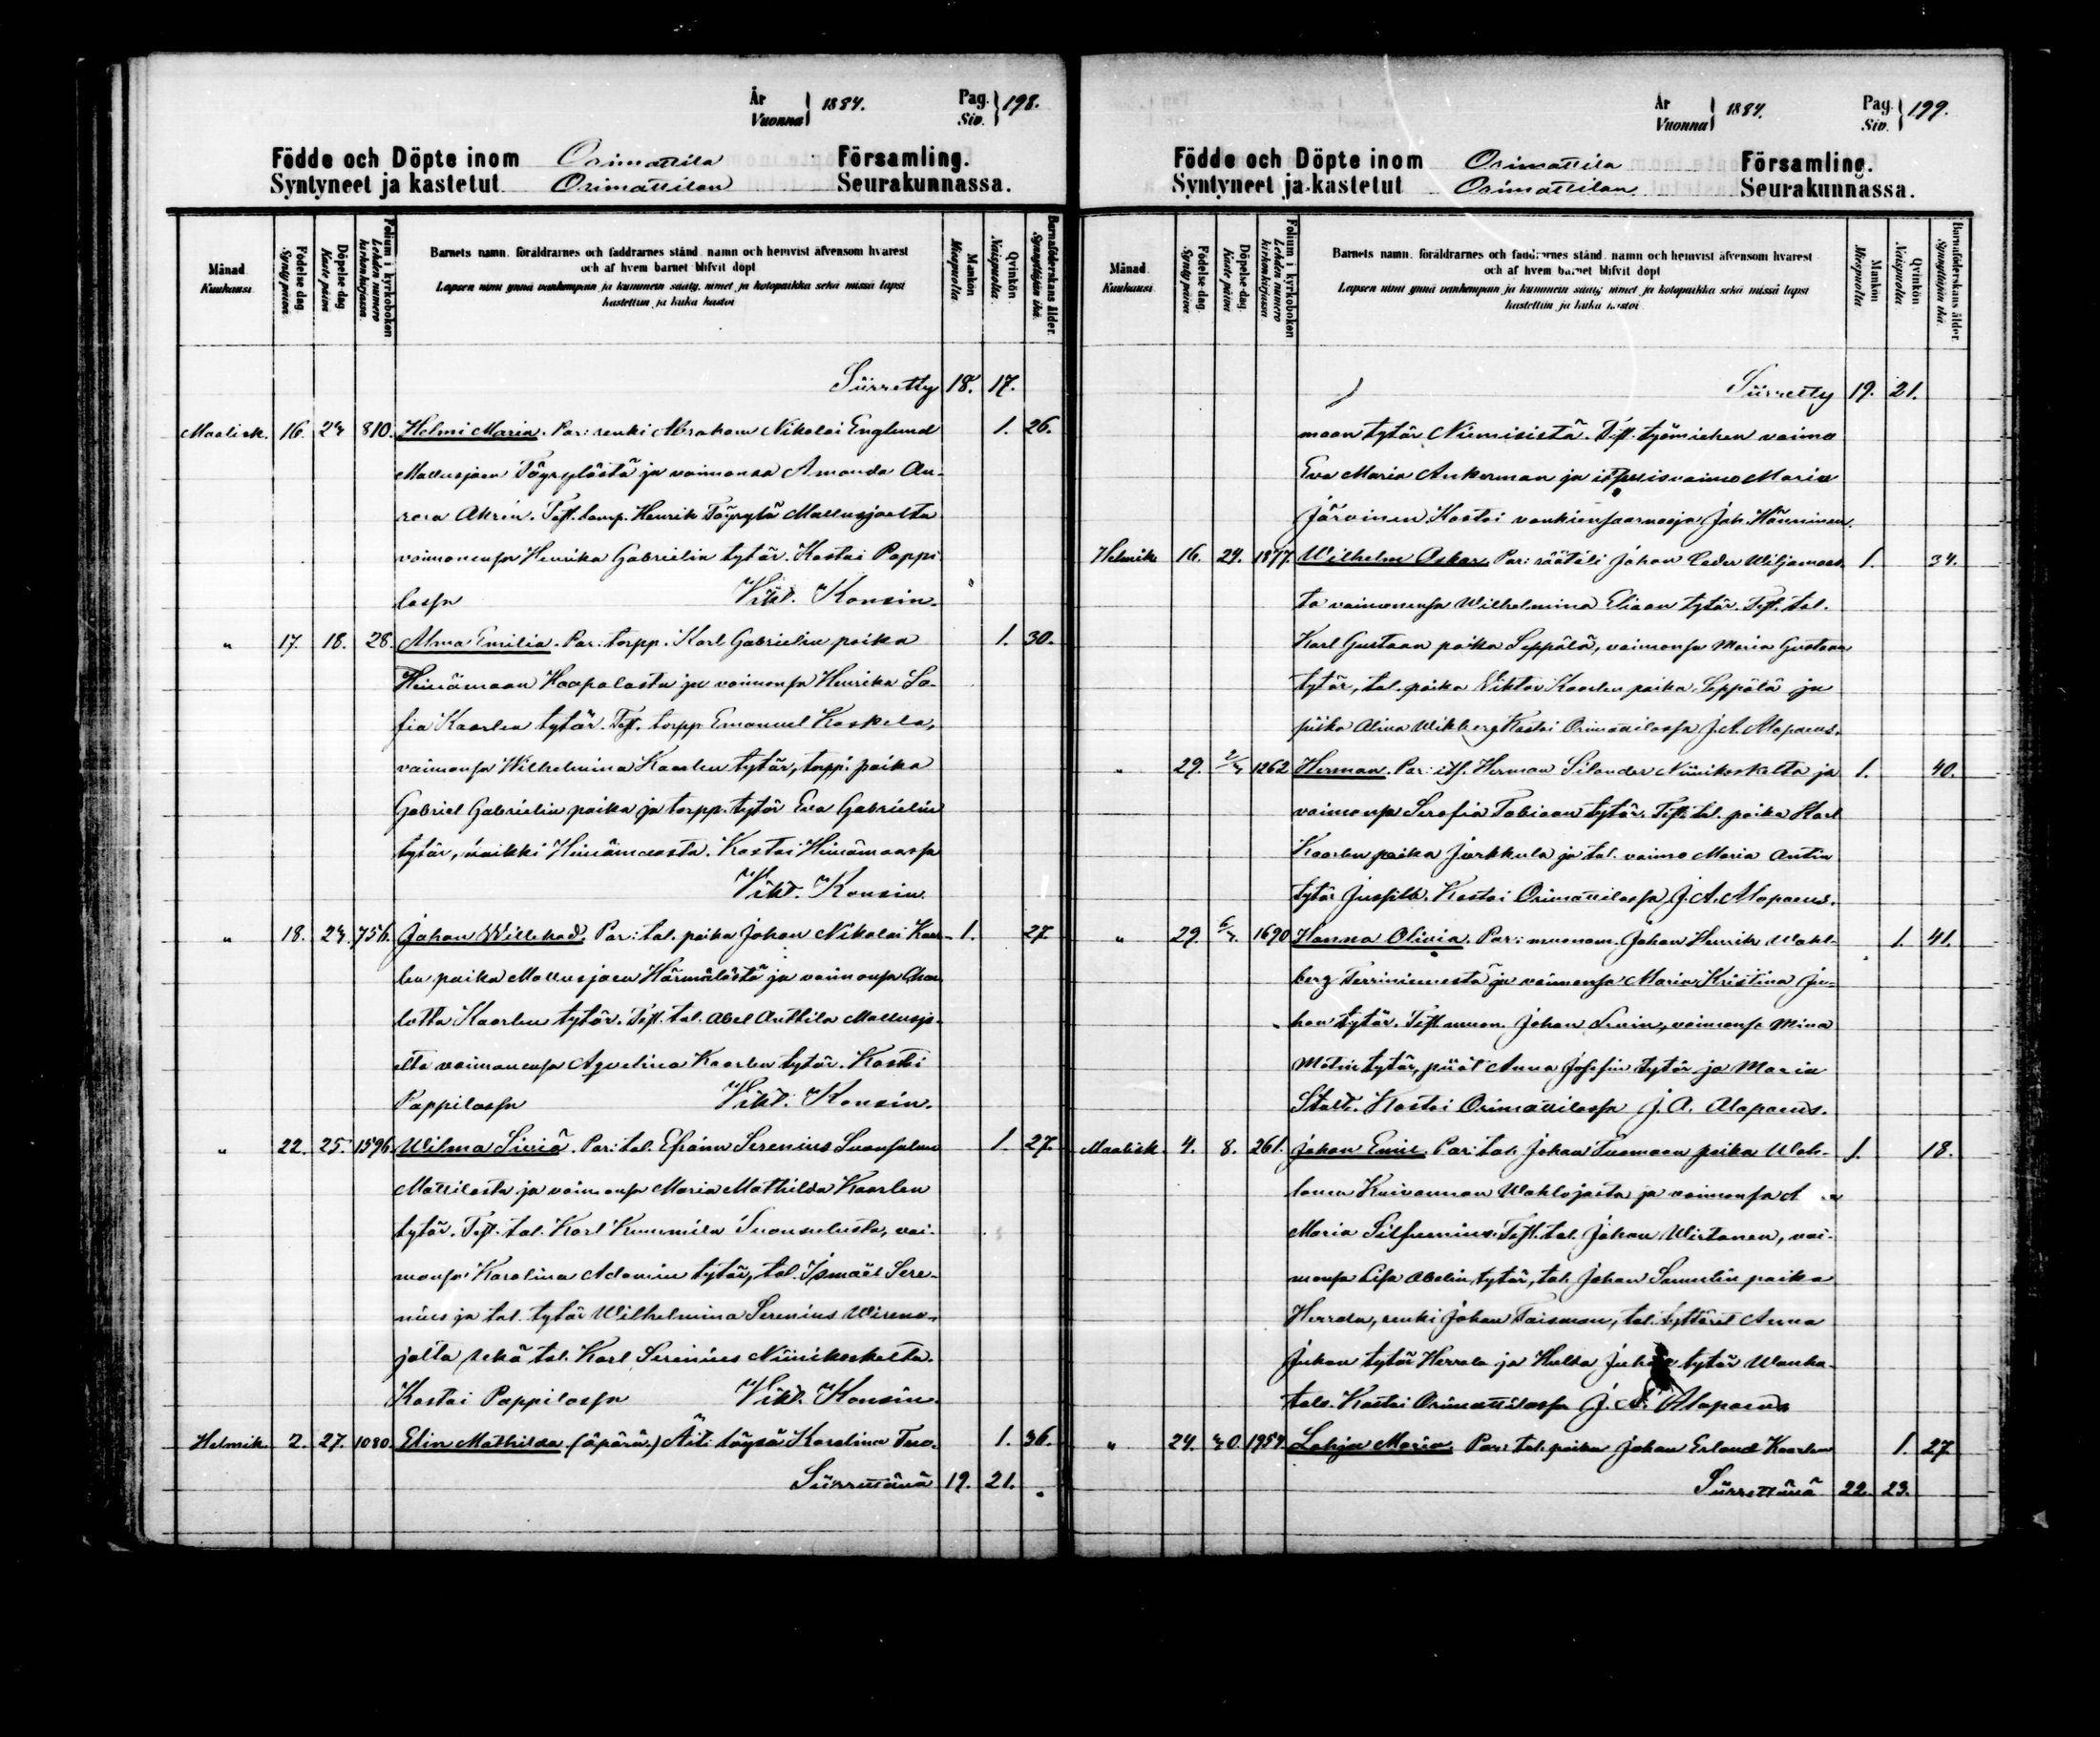 År
Vuonna } 1884. Pag.
Siv. } 198.
Födde och Döpte inom Orimattila Församling.
Syntyneet ja kastetut Orimattilan Seurakunnassa.
Månad. Kuukausi.
Födelse dag. Synty päivä.
Döpelse dag. Kaste päivä.
Folium i kyrkoboken Lehden numero kirkonkirjassa.
Barnets namn, föräldrarnes och faddrarnes stånd, namn och hemvist äfvensom hvarest
och af hvem barnet blifvit döpt
Lapsen nimi ynnä vanhempain ja kummein sääty, nimet ja kotopaikka sekä missä lapsi
kastettiin ja kuka kastoi
Mankön Miespuolia.
Qvinkön Naispuolia.
Barnaföderskans ålder. Synnyttäjän ikä.
Siirretty 18. 17.
Maalisk. 16. 23 810. Helmi Maria. Par: renki Abraham Nikolai Englund 1. 26.
Mallusjoen Töyrylästä ja vaimonsa Amanda Au-
rora Ahrén. Test. lamp. Henrik Töyrylä Mallusjoelta
vaimonensa Henrika Gabrielin tytär. Kastoi Pappi-
lassa Vikt. Konsin.
" 17. 18. 28. Alma Emilia. Par: torpp. Karl Gabrielin poika 1. 30.
Heinämaan Haapalasta ja vaimonsa Henrika So-
fia Kaarlen tytär. Test. torpp Emanuel Koskela,
vaimonsa Wilhelmina Kaarlen tytär, torpp. poika
Gabriel Gabrielin poika ja torpp. tytär Eva Gabrielin
tytär, kaikki Heinämaasta. Kastoi Heinämaassa
Vikt. Konsin.
" 18. 23. 756. Johan Willehad. Par: tal. poika Johan Nikolai Kaar- 1. 27.
len poika Mallusjoen Härmälästä ja vaimonsa Char
lotta Kaarlen tytär. Test. tal. Abel Anttila Mallusjo-
elta vaimonensa Kaarlen tytär. Kastoi
Pappilassa Vikt. Konsin.
" 22. 25. 1596. Wilma Siviä. Par: tal. Efraim Serenius
1. 27.
Mattilasta ja vaimonsa Maria Mathilda Kaarlen
tytär. Test. tal. Karl vai-
monsa Karolina Adamin tytär, tal. Ismaël Sere-
nius ja tal. tytär Wilhelmina Serenius Wireno-
jalta sekä tal. Karl Serenius Niinikoskelta.
Kastoi Pappilassa Vikt. Konsin.
Helmik. 2. 27. 1080. Elin Mathilda (äpärä.) Äiti löysä Karolina Tuo- 1. 36.
Siirrettävä 19. 21.
År
Vuonna } 1884. Pag.
Siv. } 199.
Födde och Döpte inom Orimattila Församling.
Syntyneet ja kastetut Orimattilan Seurakunnassa.
Månad. Kuukausi.
Födelse dag. Synty päivä
Döpelse-dag. Kaste päivä
Folium i kyrkoboken Lehden numero kirkonkirjassa
Barnets namn, föräldrarnes och faddrarnes stånd, namn och hemvist äfvensom hvarest
och af hvem barnet blifvit döpt
Lapsen nimi ynnä vanhempain ja kummein sääty, nimet ja kotopaikka sekä missä lapsi
kastettiin ja kuka kastoi
Mankön Miespuolia
Qvinkön. Naispuolia
Barnaföderskans ålder. Synnyttäjän ikä.
Siirretty 19. 21.
maan tytär Niemisistä. Test. työmiehen vaimo
Eva Maria Ankerman ja itsellisvaimo Maria
Järvinen. Kastoi vankiensaarnaaja Joh. Hänninen.
Helmik. 16. 24. 1877. Wilhelm Oskar. Par: räätäli Johan Ceder Wiljamaas- 1. 34.
ta vaimonensa Wilhelmina Eliaan tytär. Test. tal.
Karl Gustaan poika Seppälä, vaimonsa Maria Gustaan
tytär, tal. poika Viktor Kaarlen poika Seppälä ja
piika Alina Wikberg. Kastoi Orimattilassa J. A. Alopaeus.
" 29. 2/3 1262 Herman. Par: its. Herman Silander Niinikoskelta ja 1. 40.
vaimonsa Serafia Tobiaan tytär. Test. tal. poika Karl
Kaarlen poika Jurkkola ja tal. vaimo Maria Antin
tytär Jussila. Kastoi Orimattilassa J. A. Alopaeus.
" 29. 6/3. 1690 Hanna Olivia. Par: muonam. Johan Henrik Wahl- 1. 41.
berg Terriniemestä ja vaimonsa Maria Kristina Ju-
han tytär. Test. muon. Johan vaimonsa Mina
Matin tytär, piiat Anna Josefin tytär ja Maria
Kastoi Orimattilassa J. A. Alopaeus.
Maalisk. 4. 8. 261. Johan Emil. Par: tal. Johan Tuomaan poika Wah- 1. 18.
lonen Kuivannon Wahlojasta ja vaimonsa
Maria Silfvenius. Test. tal. Johan Wirtanen, vai-
monsa Lisa Abelin tytär, tal. Johan Samulin poika
Herrala, renki Johan Toisman, tal. tyttäret Anna
Juhan tytär Herrala ja Hulda Juhan tytär Wanha-
talo. Kastoi Orimattilassa J. A. Alopaeus.
" 24. 30. 1954. Lahja Maria. Par: tal. poika Johan Erland Kaarlen 1. 27
Siirrettävä 22. 23.